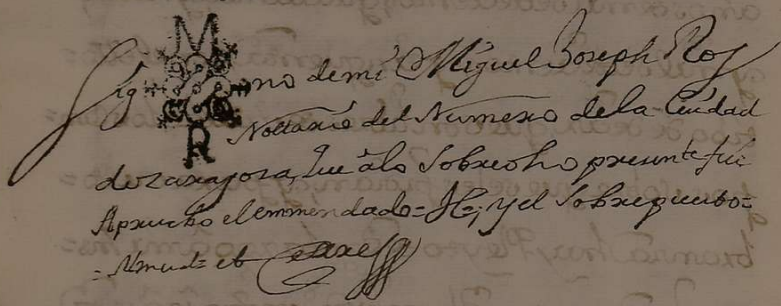 M
Sig no de mi Miguel Joseph Roy
R
Nottario del Numero de la Ciudad
de zaragoza, que â lo Sobredho presente fui
Apruebo el emmendado =
y el Sobrepuesto =
et Cerre